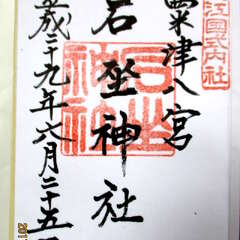 江国式内社
粟津八宮
石坐神社
平成二十九年八月二十五日